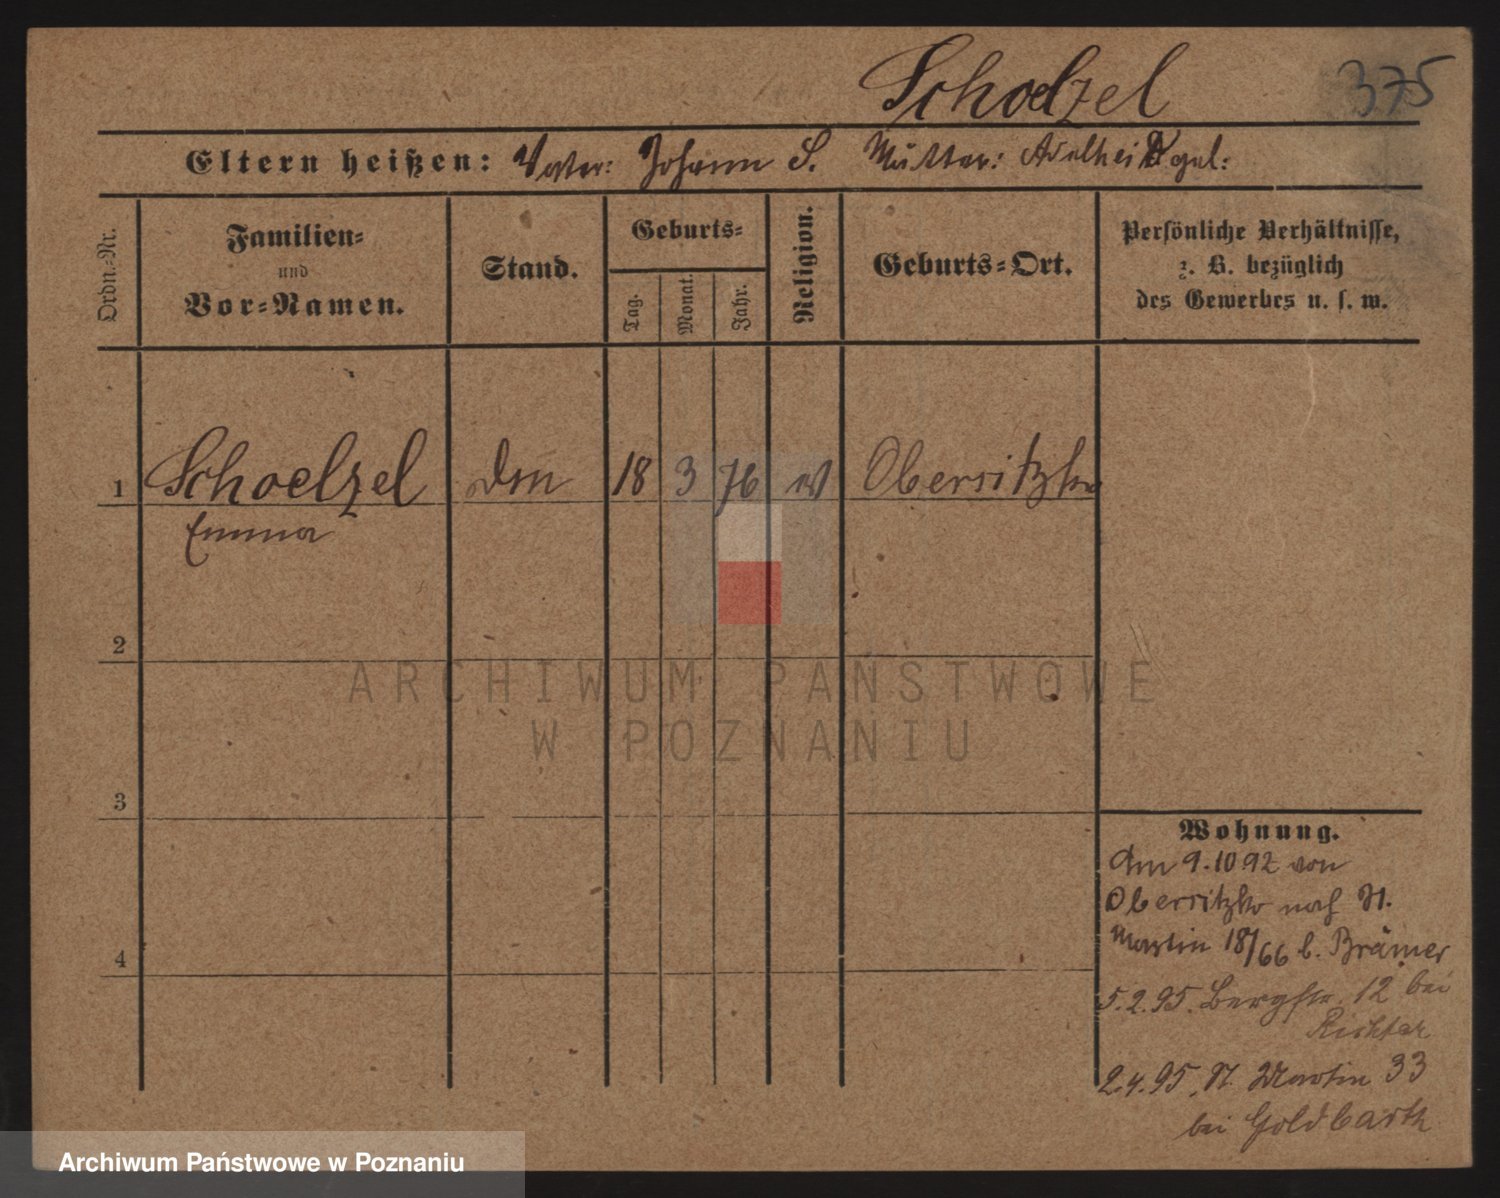 Schoelzel 375
Eltern heißen: Vater: Johann S. Mutter: Adelheid
Ordn.-Nr.
Familien-
und
Vor-Namen.
Stand.
Geburts-
Tag.
Monat.
Jahr.
Religion.
Geburts-Ort.
Persönliche Verhältnisse,
z. B. bezüglich
des Gewerbes u. s. w.
1 Schoelzel 18 3 76 Obersitzko
Emma
2
3
4
Wohnung.
Am 9.10.92 von
Obersitzko nach St.
Martin 18/66 b. Brämer
5.2.95. Bergstr. 12 bei
Richter
2.4.95. St. Martin 33
bei Goldbarth
ARCHIWUM PAŃSTWOWE
W POZNANIU
Archiwum Państwowe w Poznaniu